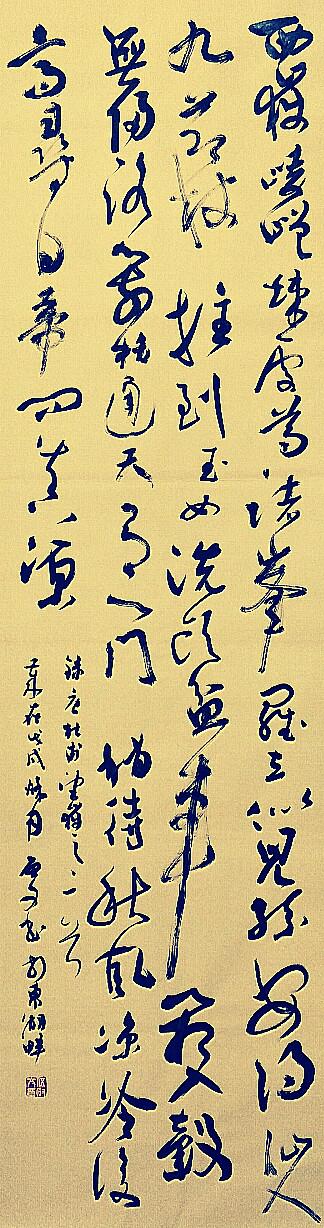 西嶽崚嶒竦處尊諸峯羅立似兒孫安得仙人
九節杖拄到玉女洗頭盆車箱入穀
無歸路箭栝通天有一門稍待秋風涼冷後
高尋白帝問真源
錄唐杜甫望嶽之一首
歲在戊戌秋月書於東湖畔